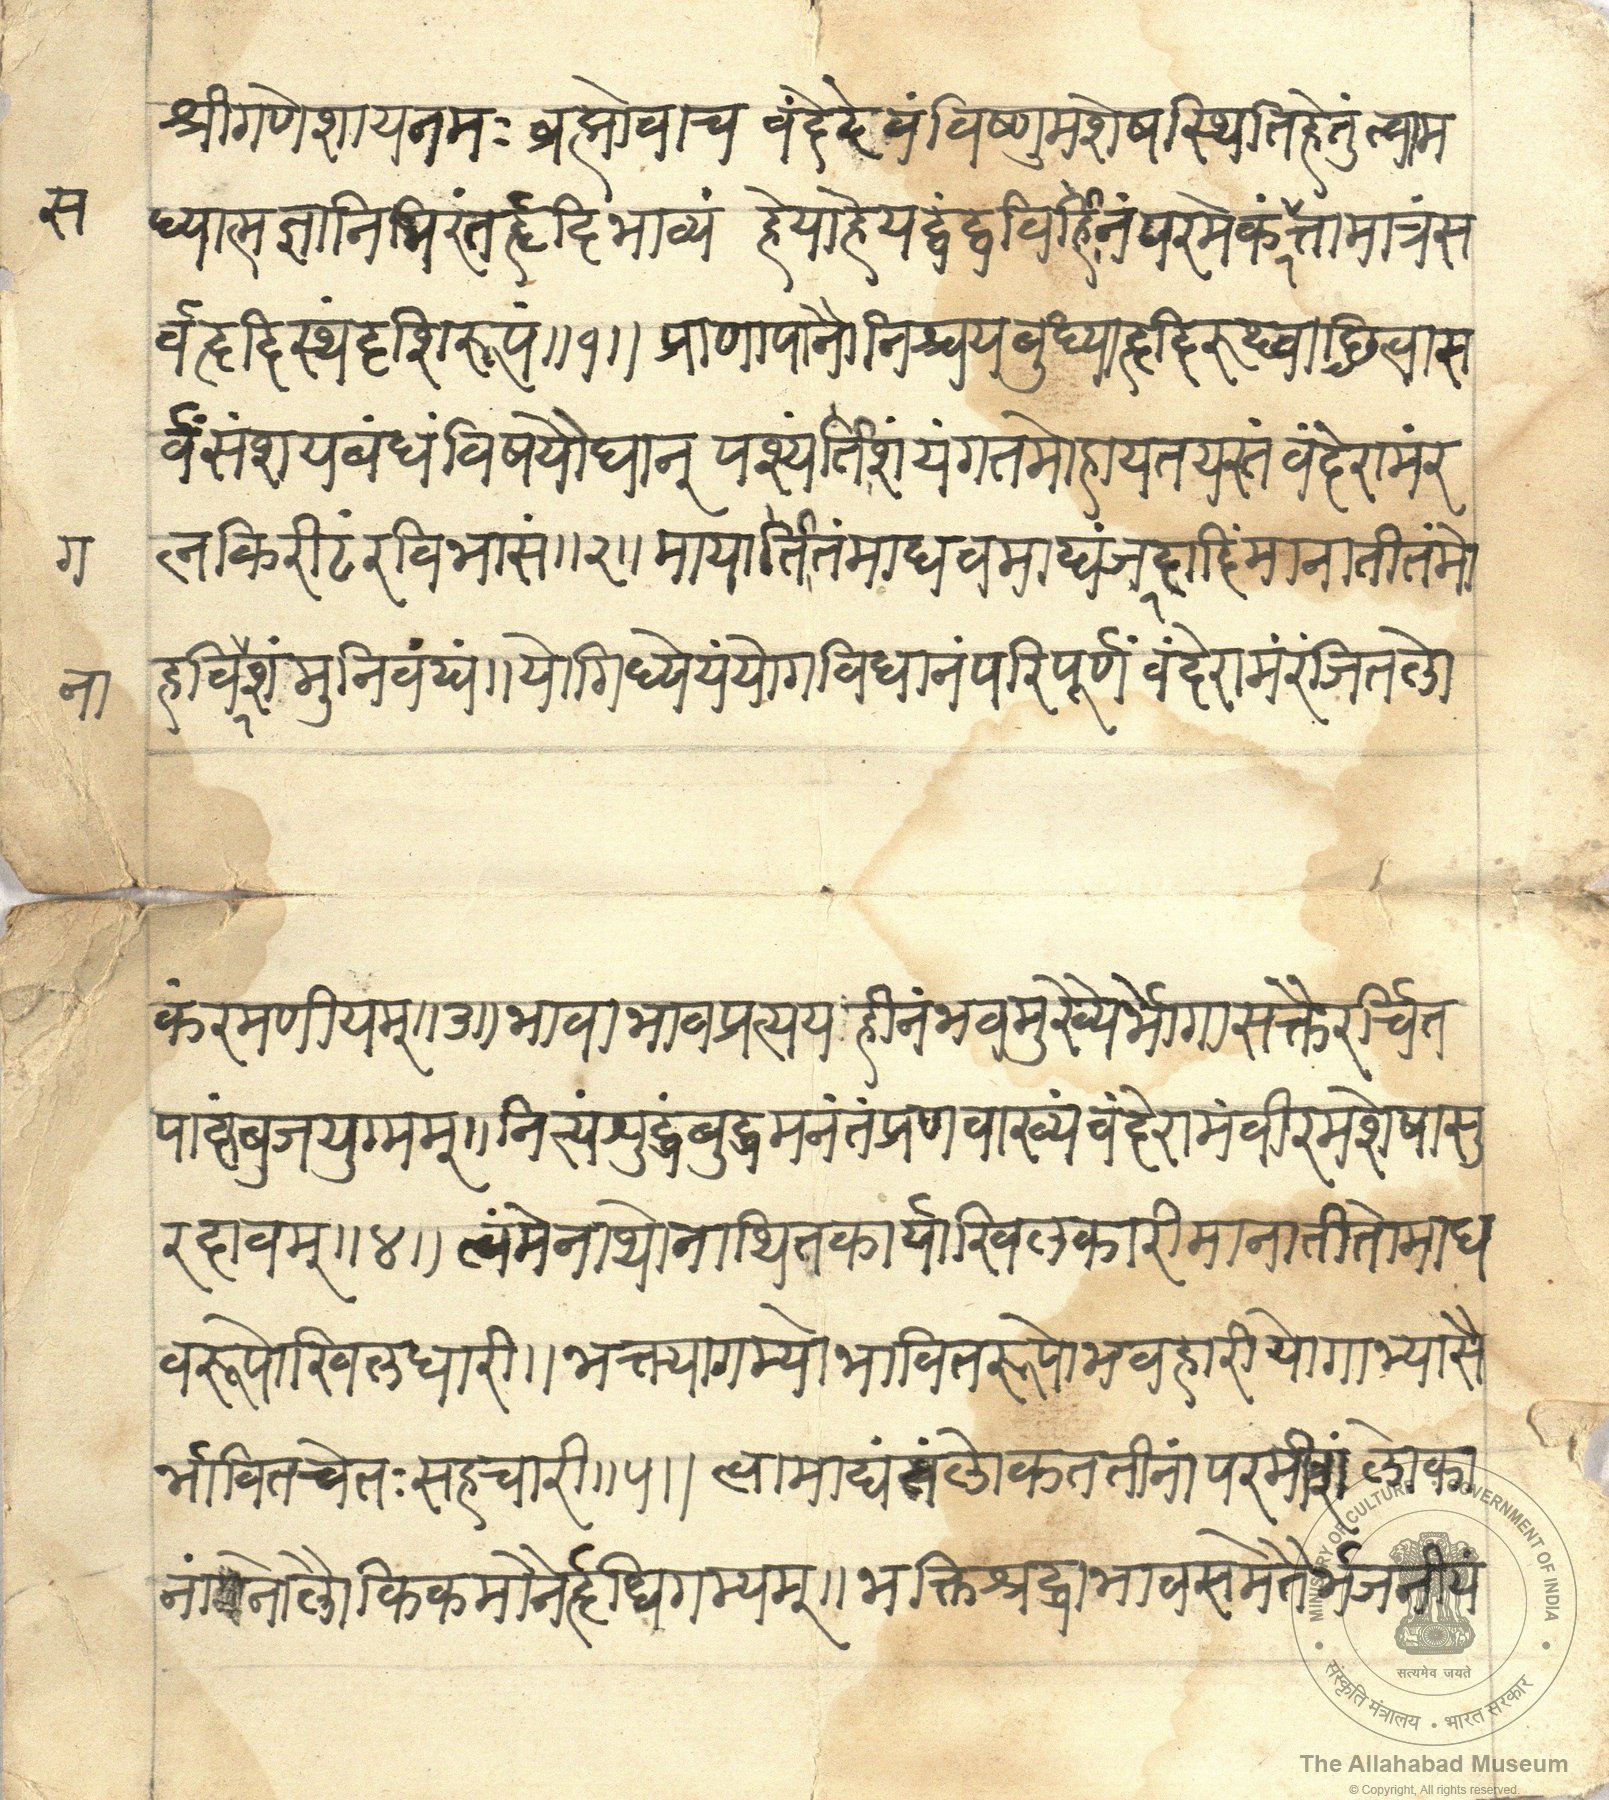 श्रीगणेशायनमः ब्रह्मोवाच वंदेदेवंविष्णुमशेषस्थितिहेतुंत्वाम
स
ध्यात्मज्ञानिभिरंतर्हृदिभाव्यं हेयाहेयद्वंद्वविहीनंपरमेकंत्तामात्रंस
र्वहृदिस्थंदृशिरूपं॥१॥ प्राणापानौनिश्चयबुध्याहृदिरुध्वाछित्वास
र्वंसंशयबंधंविषयौघान् पश्यंतीशंयंगतमोहायतयस्तं वंदेरामंर
ग
त्नकिरीटंरविभासं॥२॥ मायातीतंमाधवमाद्यंजदादिंमानातीतंमो
ना
हविशंमुनिवंद्यं॥योगिध्येयंयोगविधानंपरिपूर्णं वंदेरामंरंजितलो
कंरमणीयम्॥३॥भावाभावप्रत्ययहीनंभवमुख्यैर्भोगासक्तैरर्चित
पादांबुजयुग्मम्॥नित्यंशुद्धंबुद्धमनंतंप्रणवाख्यंवंदेरामंवीरमशेषासु
रदावम्॥४॥ त्वंमेनाथोनाथितकार्याखिलकारीमानातीतोमाध
वरूपोखिलधारी॥भक्त्यागम्योभावितरूपोभवहारीयोगाभ्यासै
र्भावितचेतःसहचारी॥५॥ त्वामाद्यंतंलोकततीनांपरमीशं लोका
नांनोलौकिकमानैरधिगम्यम्॥भक्तिश्रद्धाभावसमेतैर्भजनीयं
MINISTRY OF CULTURE GOVERNMENT OF INDIA
सत्यमेव जयते
संस्कृति मंत्रालय • भारत सरकार
The Allahabad Museum
© Copyright, All rights reserved.